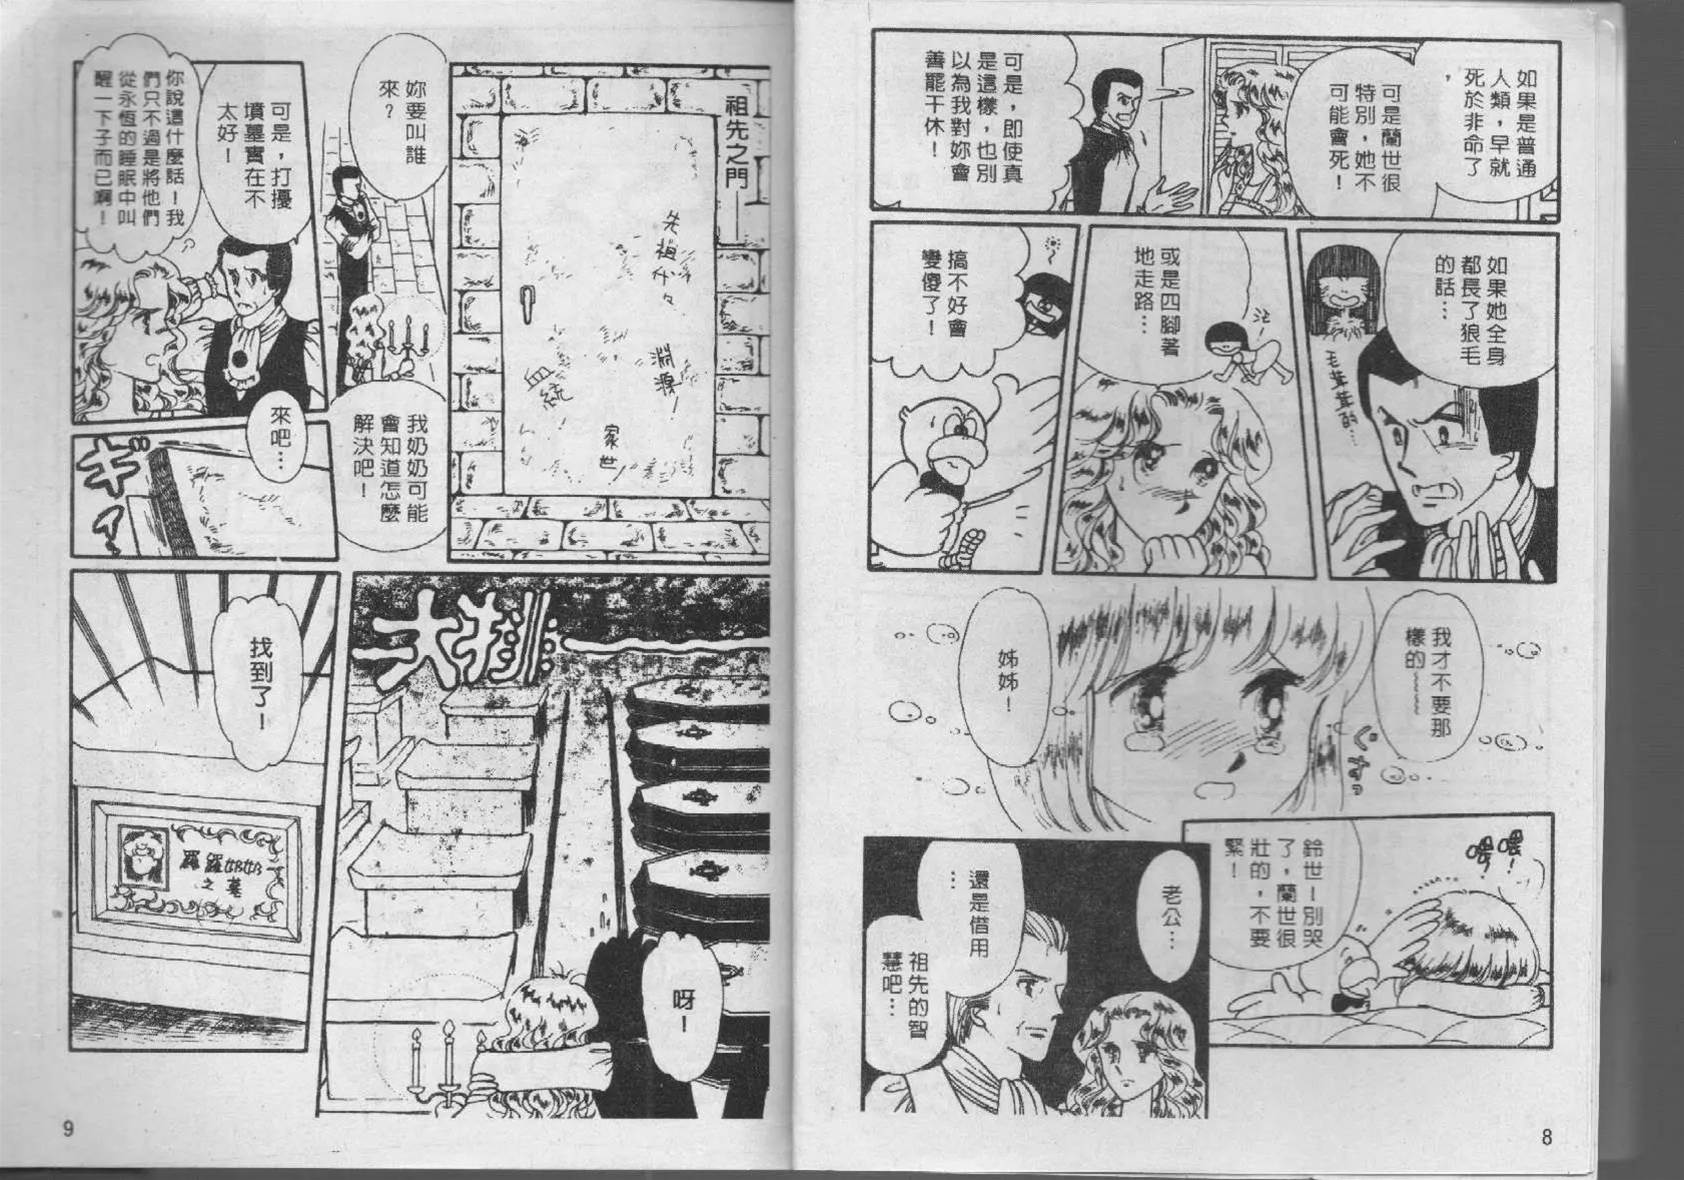 如果是普通
人類，早就
死於非命了
，
可是蘭世很
特別，她不
可能會死！
可是，即使真
是這樣，也別
以為我對妳會
善罷干休！
如果她全身
都長了狼毛
的話…
毛茸茸的…
或是四腳著
地走路…
搞不好會
變傻了！
我才不要那
樣的～～～
姊姊！
喂！
喂！
鈴世！別哭
了，蘭世很
壯的，不要
緊！
老公…
還是借用
…
祖先的智
慧吧…
8
祖先之門
先祖代々
淵源！
血統
家世
妳要叫誰
來？
我奶奶可能
會知道怎麼
解決吧！
可是，打擾
墳墓實在不
太好！
你說這什麼話！我
們只不過是將他們
從永恆的睡眠中叫
醒一下子而已啊！
來吧…
ギ
イ
呀！
找到了！
羅羅奶奶
之墓
9